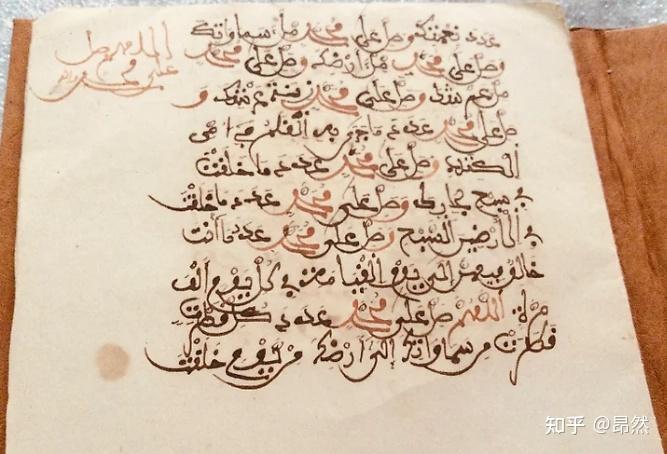 عدد نعمتك وصل على محمد ملء سماواتك
وصل على محمد ملء ارضك وصل على محمد
ملء عرشك وصل على محمد زنة عرشك و
صل على محمد عدد ما جرى به القلم في ام
الكتاب وصل على محمد عدد ما خلقت
في سبع بحارك وصل على محمد عدد ما خلقت
في الارضين السبع وصل على محمد عدد ما انت
خالق فيهن الى يوم القيامة في كل يوم الف
مرة اللهم صل على محمد عدد كل قطرة
قطرت من سماواتك الى ارضك من يوم خلقت
اللهم صل
على محمد
知乎 @昂然